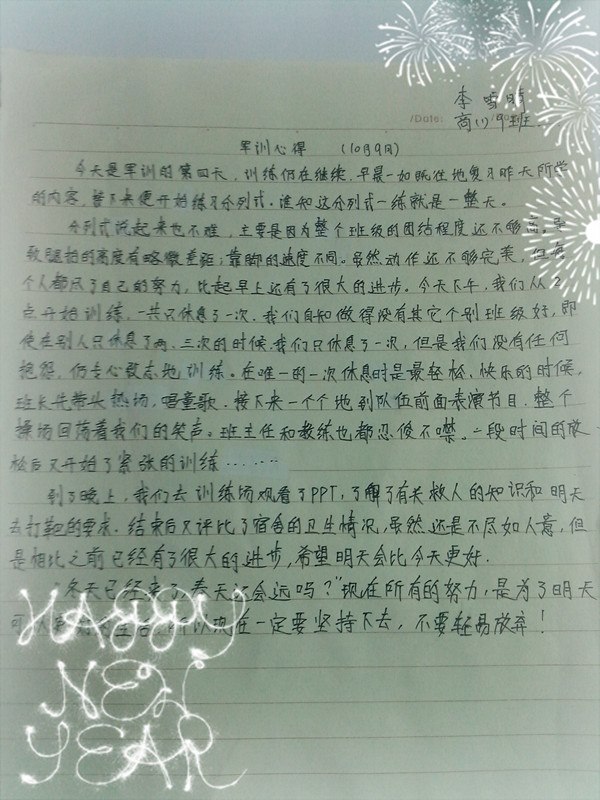 李雪晴
/Date:
商(1)9班
军训心得 (10月9日)
今天是军训的第四天,训练仍在继续,早晨一如既往地复习昨天所学
的内容,接下来便开始练习分列式。谁知这分列式一练就是一整天。
分列式说起来也不难,主要是因为整个班级的团结程度还不够高。导
致腿抬的高度有略微差距;靠脚的速度不同。虽然动作还不够完美,但每
个人都尽了自己的努力,比起早上还有了很大的进步。今天下午,我们从2
点开始训练,一共只休息了一次,我们自知做得没有其它个别班级好,即
使在别人只休息了两、三次的时候,我们只休息了一次,但是我们没有任何
抱怨,仍专心致志地训练。在唯一的一次休息时是最轻松、快乐的时候,
班长先带头热场,唱童歌.接下来一个个地到队伍前面表演节目.整个
操场回荡着我们的笑声。班主任和教练也都忍俊不噤。一段时间的放
松后又开始了紧张的训练………
到了晚上,我们去训练场观看了PPT,了解了有关救人的知识和明天
去打靶的要求.结束后又评比了宿舍的卫生情况,虽然还是不尽如人意,但
是相比之前已经有了很大的进步,希望明天会比今天更好.
"冬天已经来了,春天还会远吗?"现在所有的努力,是为了明天
可以 所以现在一定要坚持下去,不要轻易放弃!
HAPPY
NEW
YEAR